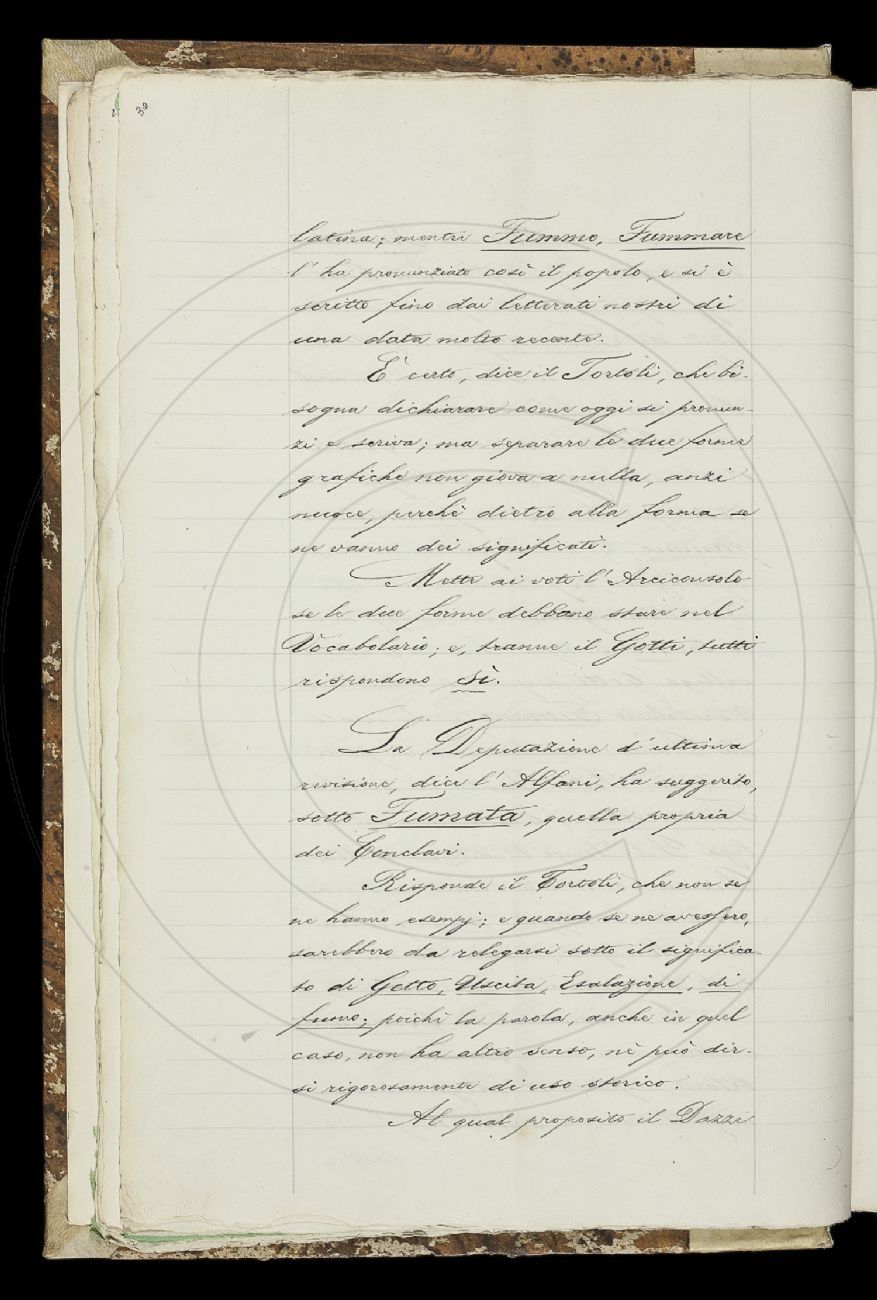 30
latina; mentre Fummo, Fummare
l'ha pronunziato così il popolo, e si è
scritto fino dai letterati nostri di
una data molto recente.
È certo, dice il Tortoli, che bi-
sogna dichiarare come oggi si pronun-
zi e scriva; ma separare le due forme
grafiche non giova a nulla, anzi
nuoce, perchè dietro alla forma se
ne vanno dei significati.
Mette ai voti l'Arciconsolo
se le due forme debbano stare nel
Vocabolario; e, tranne il Gotti, tutti
rispondono sì.
La Deputazione d'ultima
revisione, dice l'Alfani, ha suggerito,
sotto Fumata, quella propria
dei Conclavi.
Risponde il Tortoli, che non se
ne hanno esempj; e quando se ne avessero,
sarebbero da relegarsi sotto il significa-
to di Getto, Uscita, Esalazione, di
fumo; poichè la parola, anche in quel
caso, non ha altro senso, nè può dir-
si rigorosamente di uso storico.
Al qual proposito il Dazzi